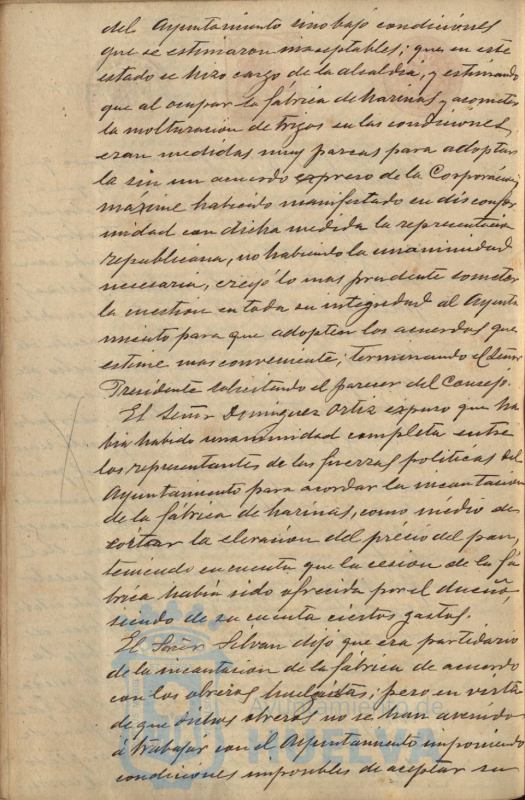 del Ayuntamiento sino bajo condiciones
que se estimaron inaceptables; que en este
estado se hizo cargo de la alcaldia, y estimando
que al ocupar la fábrica de harinas y acometer
la molturacion de trigos en las condiciones
eran medidas muy para adoptar
la sin un acuerdo expreso de la Corporacion,
máxime habiendo manifestado su disconfor
midad con dicha medida la representacion
republicana, no habiendo la unanimidad
necesaria, creyó lo mas prudente someter
la cuestion en toda su integridad al Ayunta
miento para que adopten los acuerdos que
estime mas conveniente; terminando el Señor
Presidente solicitando el parecer del Concejo.
El Señor Dominguez Ortiz expuso que ha
bia habido unanimidad completa entre
los representantes de las fuerzas politicas del
Ayuntamiento para acordar la incautacion
de la fábrica de harinas, como medio de
cortar la elevacion del précio del pan,
teniendo en cuenta que la cesion de la fá
brica habia sido ofrecida por el dueño,
siendo de su cuenta ciertos gastos.
El Señor Selvan dijo que era partidario
de la incautacion de la fábrica de acuerdo
con los obreros huelguistas; pero en vista
de que dichos obreros no se han avenido
á trabajar con el Ayuntamiento imponiendo
condiciones imposibles de aceptar su
Ayuntamiento de
HUELVA